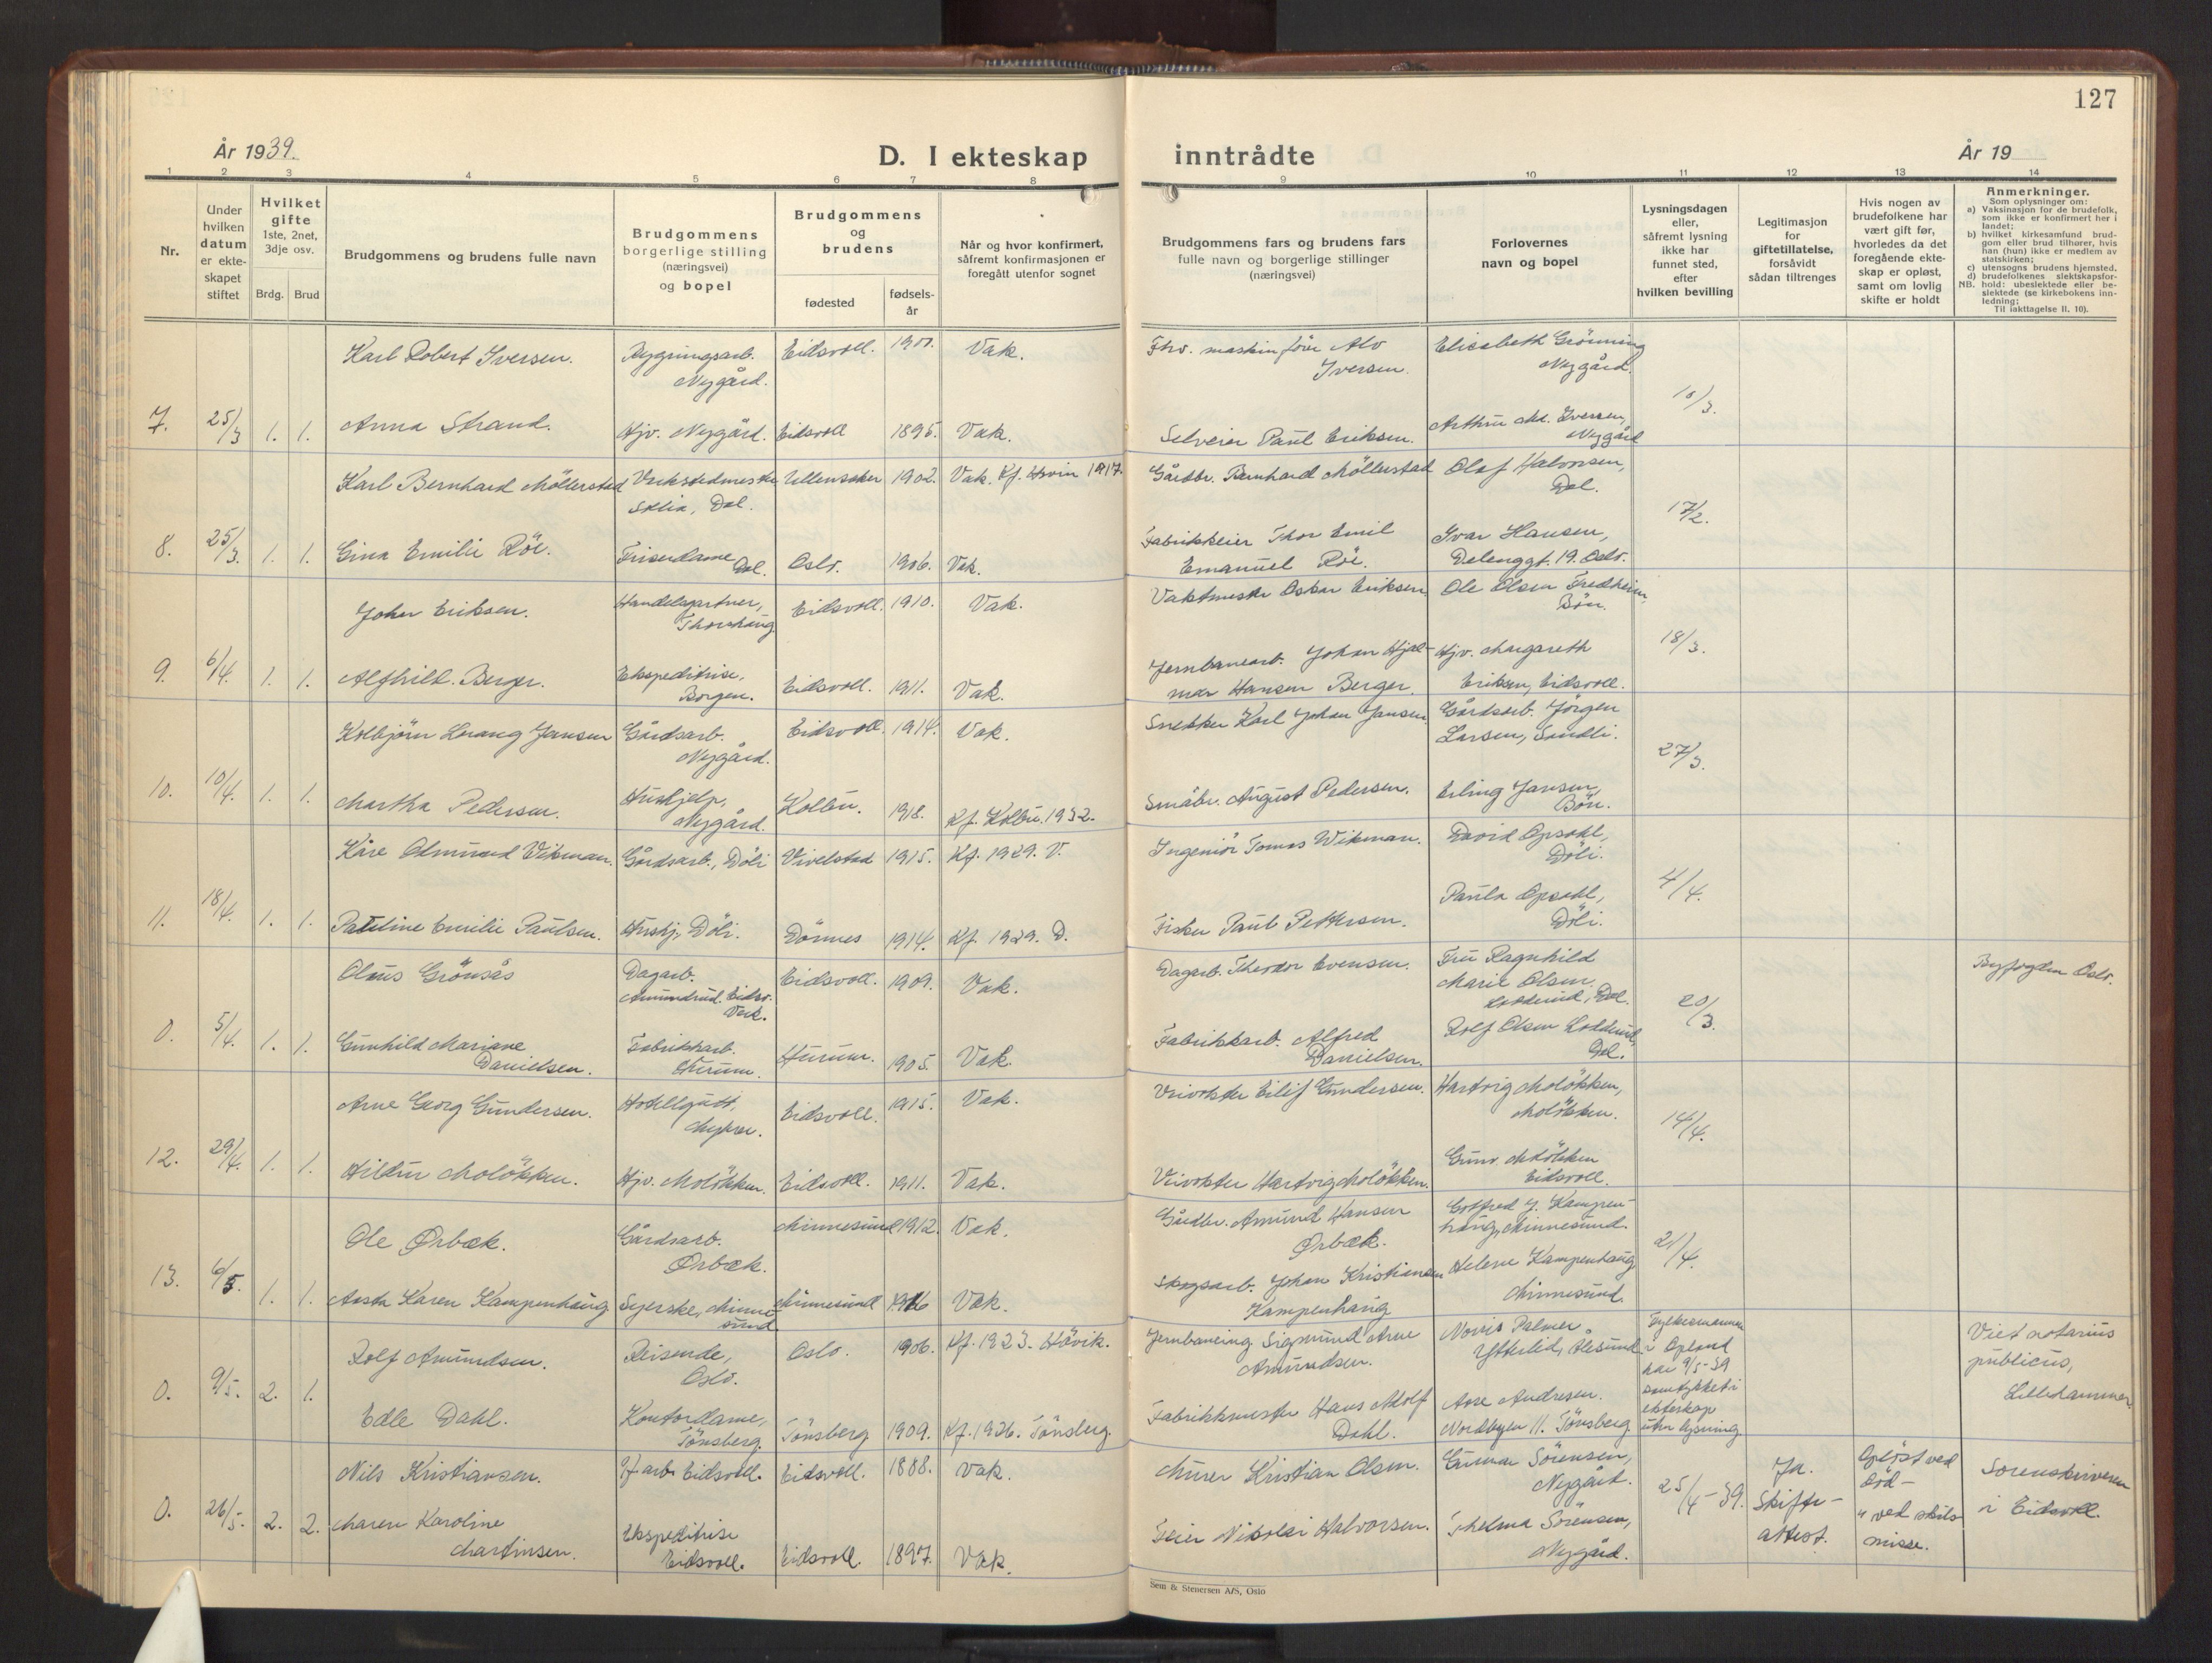 127
År 1939.
D. I ekteskap inntrådte
År 19
1 2 3 4 5 6 7 8 9 10 11 12 13 14
Nr.
Under
hvilken
datum
er ekte-
skapet
stiftet
Hvilket
gifte
1ste, 2net,
3dje osv.
Brdg. Brud
Brudgommens og brudens fulle navn
Brudgommens
borgerlige stilling
(næringsvei)
og bopel
Brudgommens
og
brudens
fødested
fødsels-
år
Når og hvor konfirmert,
såfremt konfirmasjonen er
foregått utenfor sognet
Brudgommens fars og brudens fars
fulle navn og borgerlige stillinger
(næringsvei)
Forlovernes
navn og bopel
Lysningsdagen
eller,
såfremt lysning
ikke har
funnet sted,
efter
hvilken bevilling
Legitimasjon
for
giftetillatelse,
forsåvidt
sådan tiltrenges
Hvis nogen av
brudefolkene har
vært gift før,
hvorledes da det
foregående ekte-
skap er opløst,
samt om lovlig
skifte er holdt
Anmerkninger.
Som oplysninger om:
a) Vaksinasjon for de brudefolk,
som ikke er konfirmert her i
landet;
b) hvilket kirkesamfund brud-
gom eller brud tilhører, hvis
han (hun) ikke er medlem av
statskirken;
c) utensogns brudens hjemsted,
d) brudefolkenes slektskapsfor-
NB. hold: ubeslektede eller be-
slektede (se kirkebokens inn-
ledning;
Til iakttagelse II. 10).
Karl Robert Iversen. Bygningsarb. Eidsvoll. 1901. Vak. Fhv. maskinfører Alv Elisabeth Grönning
Nygård. Iversen. Nygård.
7. 25/3 1. 1. Anna Strand. Hjv. Nygård. Eidsvoll 1895. Vak. Selveier Paul Eriksen. Arthur M. Iversen, 10/3.
Nygård
Karl Bernhard Möllerstad Verkstedmester Ullensaker 1902. Vak. Kf. Hovin 1917. Gårdbr. Bernhard Möllerstad Olaf Halvorsen,
Dal. Dal.
8. 25/3. 1. 1. Gina Emilie Röe. Friserdame Dal. Oslo. 1906. Vak. Fabrikkeier Thor Emil Ivar Hansen, 17/2.
Emanuel Röe. Delenggt. 19. Oslo.
John Eriksen. Handelsgartner, Eidsvoll. 1910. Vak. Vaktmester Oskar Eriksen Ole Olsen Fredheim,
Thorshaug Bön.
9. 6/4. 1. 1. Alfhild. Berger. Ekspeditrise, Eidsvoll. 1911. Vak. Jernbanearb. Johan Hjal- Hjv. Margareth 18/3.
Borgen. mar Hansen Berger. Eriksen, Eidsvoll.
Kolbjörn Lorang Jansen Gårdsarb. Eidsvoll. 1914. Vak. Snekker Karl Johan Jansen Gårdsarb. Jörgen
Nygård. Larsen, Sundli.
10. 10/4. 1. 1. Martha Pedersen. Hushjelp, Kolbu. 1918. Kf. Kolbu. 1932. Småbr. August Pedersen. Erling Jansen, 27/3.
Nygård. Bön.
Kåre Osmund Vikman. Gårdsarb., Döli Vivelstad 1915. Kf. 1929. V. Ingeniör Tomas Wikman. David Opsahl,
Döli.
11. 18/4. 1. 1. Pauline Emilie Paulsen. Hushj., Döli. Dönnes 1914. Kf. 1929. D. Fisker Paul Pettersen. Paula Opsahl, 4/4.
Döli.
Olaus Grönsås Dagarb. Eidsvoll. 1909. Vak. Dagarb. Theodor Evensen. Fru Ragnhild Byfogden Oslo.
Amundrud. Eidsv. Marie Olsen.
Verk. Lodderud, Dal.
0. 5/4. 1. 1. Gunhild Mariane Fabrikkarb. Hurum. 1905. Vak. Fabrikkarb. Alfred Rolf Olsen Lodderud, 20/3.
Danielsen. Hurum. Danielsen. Dal.
Arne Georg Gundersen. Hotellgutt, Eidsvoll. 1915. Vak. Veivokter Eilif Gundersen. Hartvig Molökken,
Myhrer. Molökken.
12. 29/4. 1. 1. Hildur Molökken. Hjv. Molökken. Eidsvoll. 1911. Vak. Veivokter Hartvig Molökken. Gunv. Molökken 14/4.
Eidsvoll.
Ole Ørbæk. Gårdsarb. Minnesund 1912. Vak. Gårdbr. Amund Hansen Gotfred J. Kampen-
Ørbæk. Ørbæk. haug, Minnesund.
13. 6/5. 1. 1. Asta Karen Kampenhaug Syerske, Minne- Minnesund 1916 Vak. Skogsarb. Johan Kristiansen Helene Kampenhaug 21/4.
sund. Kampenhaug Minnesund.
Rolf Amundsen. Reisende, Oslo. 1906. Kf. 1923. Hövik. Jernbaneing. Sigmund Arne Norris Palmer Fylkesmannen Viet notarius
Oslo. Amundsen. Ytterlid, Ålesund. i Opland publicus,
har 9/5-39 Lillehammer
0. 9/5. 2. 1. Edle Dahl. Kontordame, Tönsberg 1909. Kf. 1926. Tönsberg. Fabrikkmester Hans Adolf Aase Andresen. samtykket i
Tönsberg. Dahl. Nordbyen 11. Tönsberg ekteskap
uten lysning
Nils Kristiansen. arb. Eidsvoll. Eidsvoll. 1888. Vak. Murer Kristian Olsen. Gunnar Sörensen, Ja. Oplöst ved Sorenskriveren
Nygård. Skifte- död - i Eidsvoll.
0. 26/5. 2. 2. Maren Karoline Ekspeditrise Eidsvoll. 1897. Vak. Feier Nikolai Halvorsen. Thelma Sörensen, 25/4-39. attest. " ved skils-
Martinsen. Eidsvoll. Nygård. misse.
Sem & Stenersen A/S, Oslo